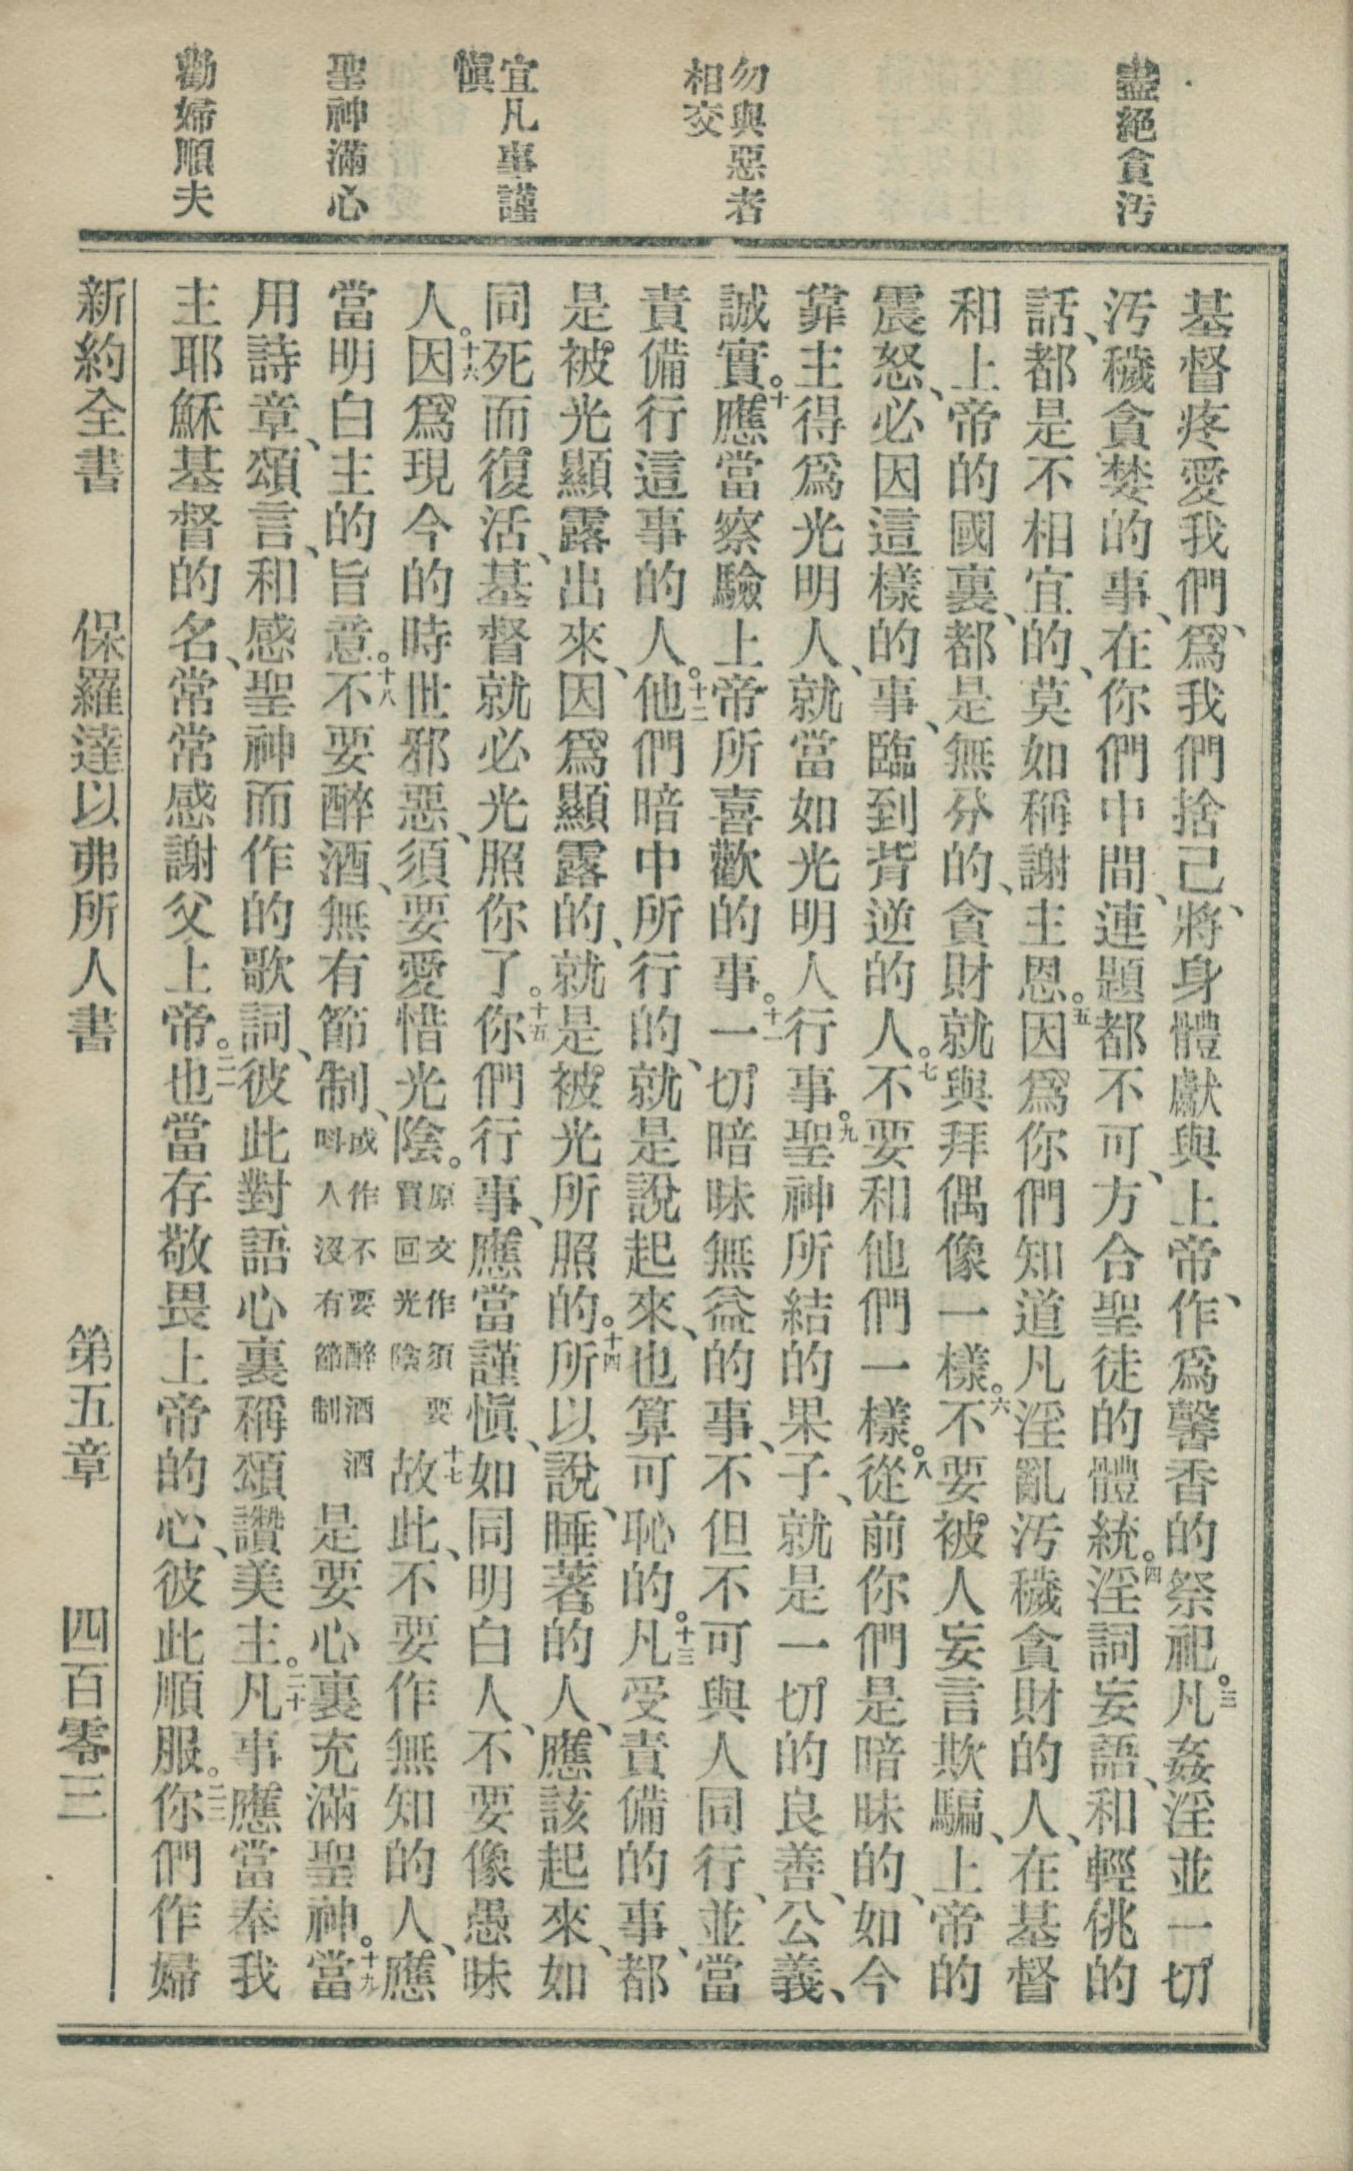 盡絕貪汚
勿與惡者
相交
宜凡事謹
愼
聖神滿心
勸婦順夫
基督疼愛我們、爲我們捨己、將身體獻與上帝、作爲馨香的祭祀。三凡姦淫並一切
汚穢貪婪的事、在你們中間、連題都不可、方合聖徒的體統。四淫詞妄語、和輕佻的
話、都是不相宜的、莫如稱謝主恩。五因爲你們知道凡淫亂汚穢貪財的人、在基督
和上帝的國裏、都是無分的、貪財就與拜偶像一樣。六不要被人妄言欺騙、上帝的
震怒、必因這樣的事、臨到背逆的人。七不要和他們一樣。八從前你們是暗昧的、如今
靠主得爲光明人、就當如光明人行事。九聖神所結的果子、就是一切的良善、公義、
誠實。十應當察驗上帝所喜歡的事。十一一切暗昧無益的事、不但不可與人同行、並當
責備行這事的人。十二他們暗中所行的、就是說起來、也算可恥的。十三凡受責備的事、都
是被光顯露出來、因爲顯露的、就是被光所照的。十四所以說、睡著的人、應該起來、如
同死而復活、基督就必光照你了。十五你們行事、應當謹愼、如同明白人、不要像愚昧
人。十六因爲現今的時世邪惡、須要愛惜光陰。原文作須要買回光陰十七故此、不要作無知的人、應
當明白主的旨意。十八不要醉酒、無有節制、或作不要醉酒酒呌人沒有節制是要心裏充滿聖神。十九當
用詩章、頌言、和感聖神而作的歌詞、彼此對語心裏稱頌讚美主。二十凡事應當奉我
主耶穌基督的名、常常感謝父上帝。二一也當存敬畏上帝的心、彼此順服。二二你們作婦
新約全書 保羅達以弗所人書 第五章 四百零三